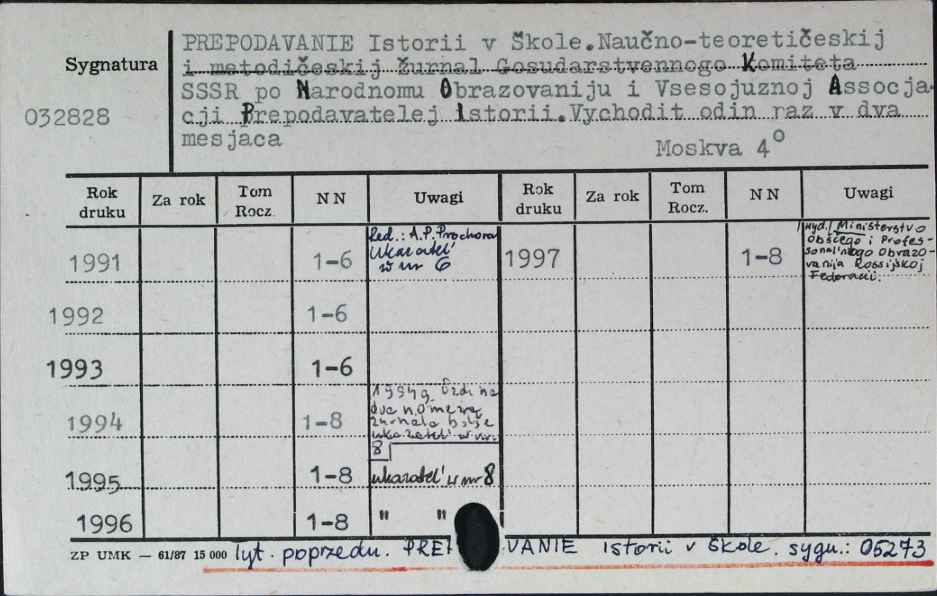 Sygnatura
032828
PREPODAVANIE Istorii v Škole.Naučno-teoretičeskij
i metodičeskij Žurnal Gosudarstvennogo Komiteta
SSSR po Narodnomu Obrazovaniju i Vsesojuznoj Assocja-
cji Prepodavatelej Istorii.Vychodit odin raz v dva
mesjaca
Moskva 4°
Rok druku Za rok Tom Rocz. NN Uwagi Rok druku Za rok Tom Rocz. NN Uwagi
1991 1-6 Red.: A.P. Prochora
Ukazatel'
w nr 6
1997 1-8 wyd. Ministerstvo
Obščego i Profes-
sonal'nogo Obrazo-
vanija Rossijskoj
Federacii.
1992 1-6
1993 1-6
1994 1-8 1994g. na
dva nomera
žurnala bol'še
ukazatel' w nr.
8
1995 1-8 ukazatel' w nr 8
1996 1-8 " "
ZP UMK — 61/87 15 000 Tyt. poprzedn. PRE VANIE Istorii v Škole. sygn.: 05273